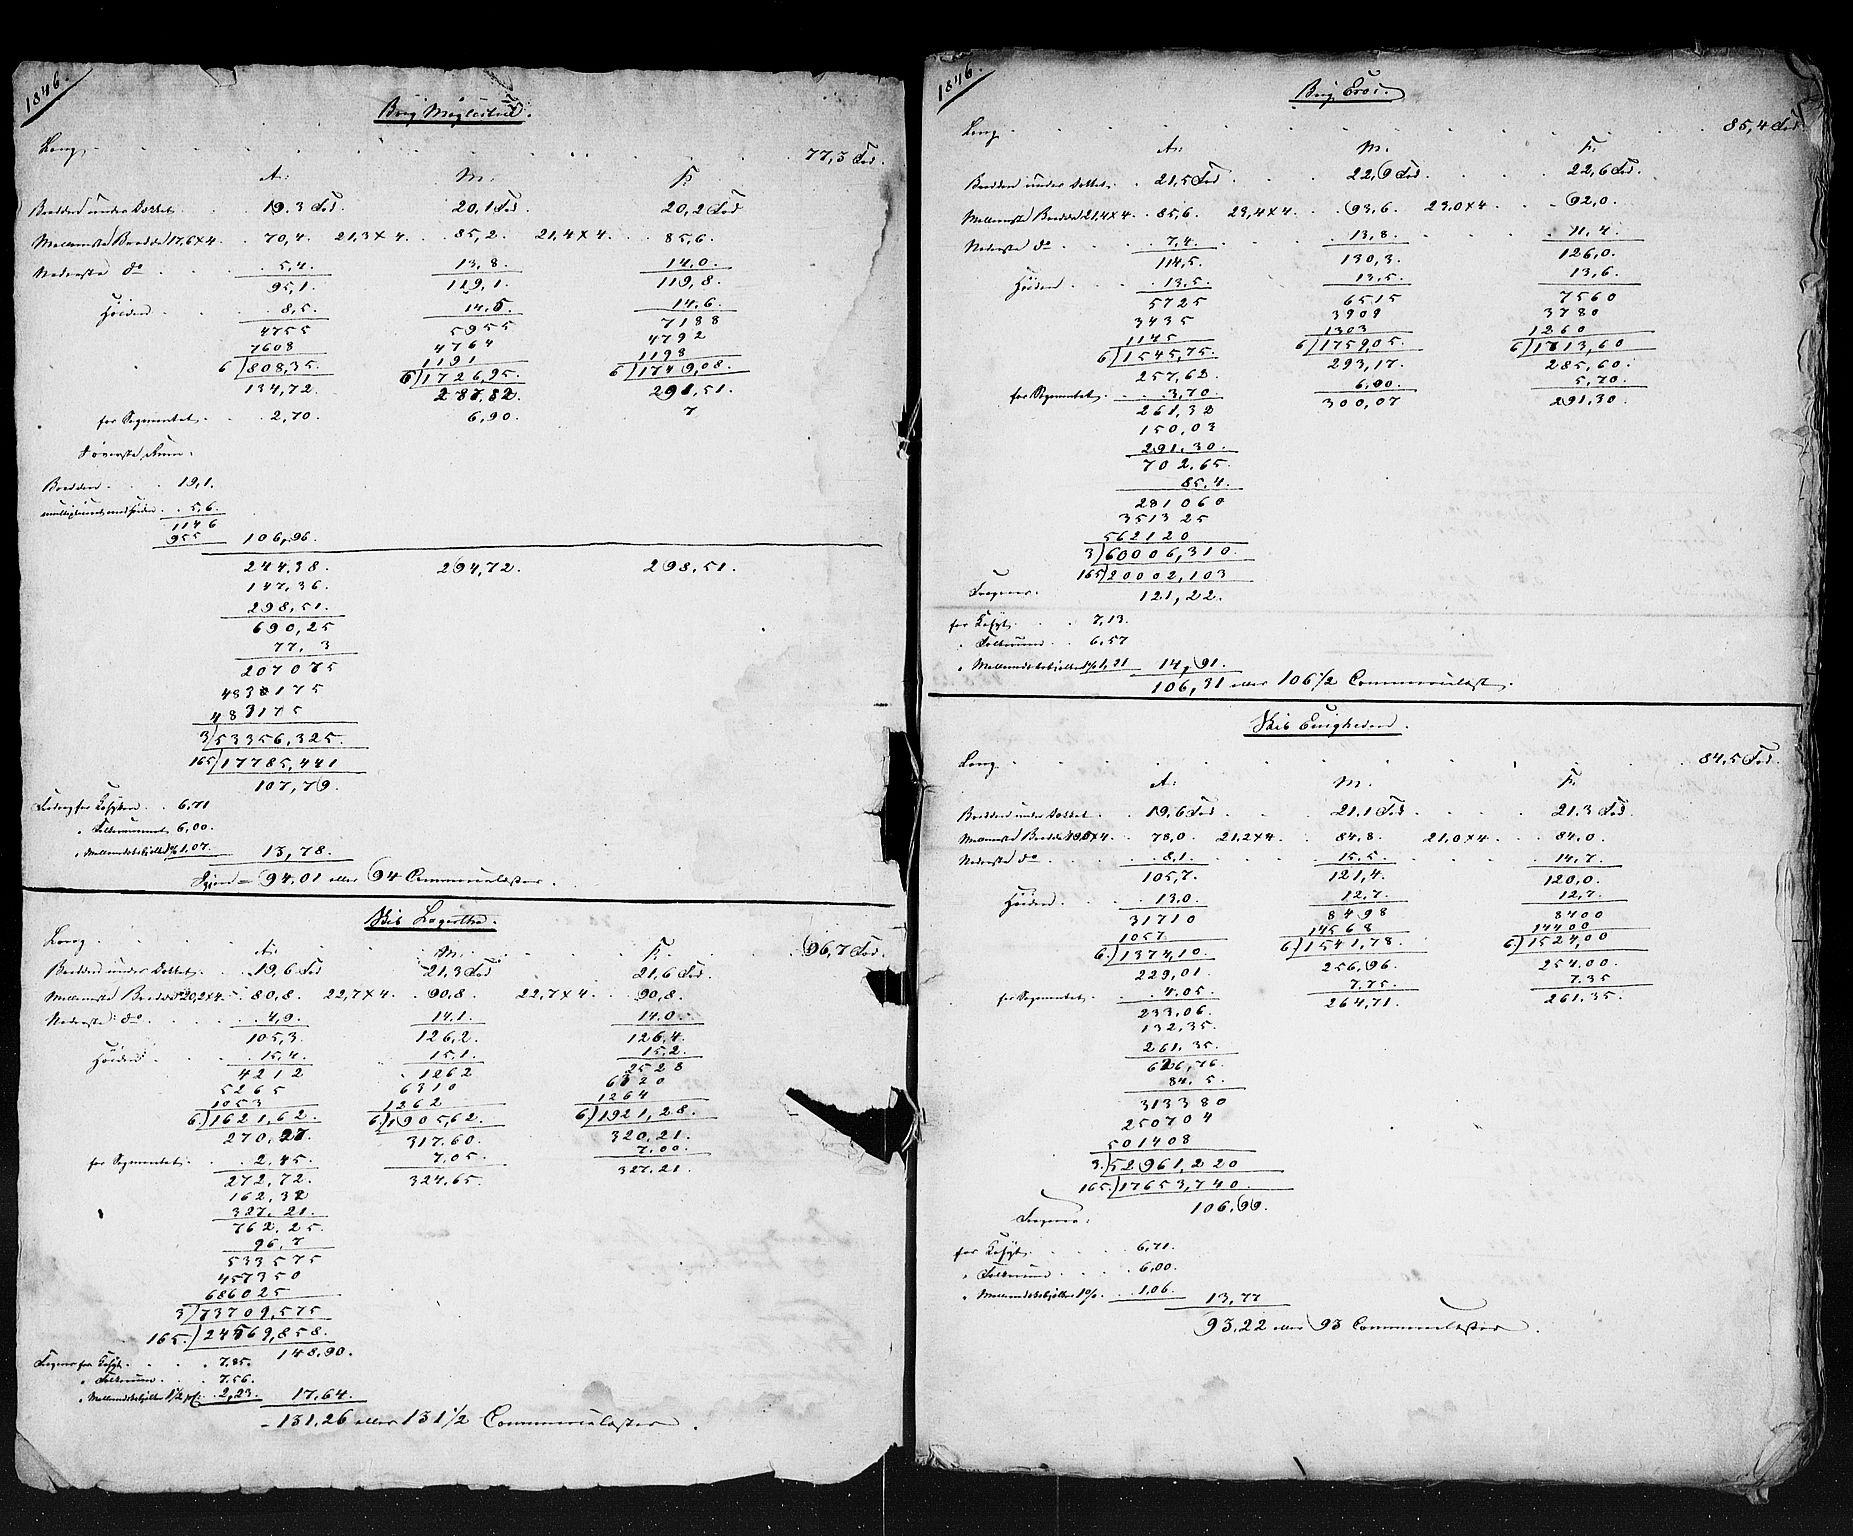 1846.
Brig Møglestue.
Læng. 77,3 Fod.
A: M. F.
Bredden under Dækket. 19.3 Fod. 20,1 Fod. 20,2 Fod.
Mellemste Bredde 17,6x4. 70,4. 21,3x4. 85,2. 21,4x4. 85,6.
Nederste do 5,4. 13,8. 14,0.
95,1. 119,1. 119,8.
Høiden 8,5. 14,5. 14,6.
4755 5955 7188
7608 4764 4792
1191 1198
6)808,35. 6)1726,95. 6)1749,08.
134,72. 287,82. 291,51.
for Segmentet 2,70. 6,90. 7
Øverste Rum.
Bredden 19,1.
multipliceret med Høiden 5,6.
1146
955 106,96.
244,38. 294,72. 298,51.
147,36.
298,51.
690,25
77,3
207075
483175
483175
3)53356,325.
165)17785,441
107,79.
Fradrag for Kahytten 6,71
" Folkerummet 6,00.
" Mellemdeksbjelker 1% 1,07. 13,78.
Igjen = 94,01 eller 94 Commerselæster.
Skib Lagertha.
Læng. 96,7 Fod.
A: M. F.
Bredden under Dækket. 19,6 Fod 21,3 Fod 21,6 Fod.
Mellemste Bredde 20,2x4. 80,8. 22,7x4. 90,8. 22,7x4. 90,8.
Nederste do 4,9. 14,1. 14,0.
105,3. 126,2. 126,4.
Høiden 15,4. 15,1. 15,2.
4212 1262 2528
5265 6310 6320
1053 1262 1264
6)1621,62. 6)1905,62. 6)1921,28.
270,27. 317,60. 320,21.
for Segmentet 2,45. 7,05. 7,00.
272,72. 324,65. 327,21.
162,32
327,21.
762,25.
96,7
533575
457350
686025
3)73709,575
165)24569,858.
148,90.
Fragaar for Kahyt. 7,85.
" Folkerum 7,56.
" Mellemdeksbjelker 1½ pC. 2,23. 17,64.
= 131,26 eller 131 1/2 Commerselæster.
1846.
Brig Eros.
Læng. 85,4 Fod.
A: M. F.
Bredden under Dækket 21,5 Fod 22,9 Fod. 22,6 Fod.
Mellemste Bredde 21,4x4. 85,6. 23,4x4. 93,6. 23,0x4. 92,0.
Nederste do 7,4. 13,8. 11,4.
114,5. 130,3. 126,0.
Høiden 13,5. 13,5. 13,6.
5725 6515 7560
3435 3909 3780
1145 1303 1260
6)1545,75. 6)1759,05. 6)1713,60
257,62. 293,17. 285,60.
for Segmentet 3,70 6,90. 5,70.
261,32 300,07 291,30.
150,03
291,30.
702,65.
85,4.
281060
351325
562120
3)60006,310.
165)20002,103
Fragaar 121,22.
for Kahyt 7,13.
" Folkerum 6,57
" Mellemdeksbjelker 1% 1,21 14,91.
106,31 eller 106 1/2 Commerselæst.
Skib Enigheden.
Læng. 84,5 Fod.
A: M. F.
Bredden under Dækket 19,6 Fod 21,1 Fod 21,3 Fod.
Mellemste Bredde 19,5x4. 78,0. 21,2x4. 84,8. 21,0x4. 84,0.
Nederste do 8,1. 15,5. 14,7.
105,7. 121,4. 120,0.
Høiden 13,0. 12,7. 12,7.
31710 8498 8400
1057 14568 14400
6)1374,10. 6)1541,78. 6)1524,00
229,01. 256,96. 254,00.
for Segmentet 4,05. 7,75. 7,35
233,06. 264,71. 261,35.
132,35.
261,35.
626,76
84,5.
313380
250704
501408
3)52961,220
165)17653,740.
106,99.
Fragaar:
for Kahyt 6,71.
" Folkerum 6,00.
" Mellemdeksbjelker 1%. 1,06. 13,77
93,22 eller 93 Commerselæster.